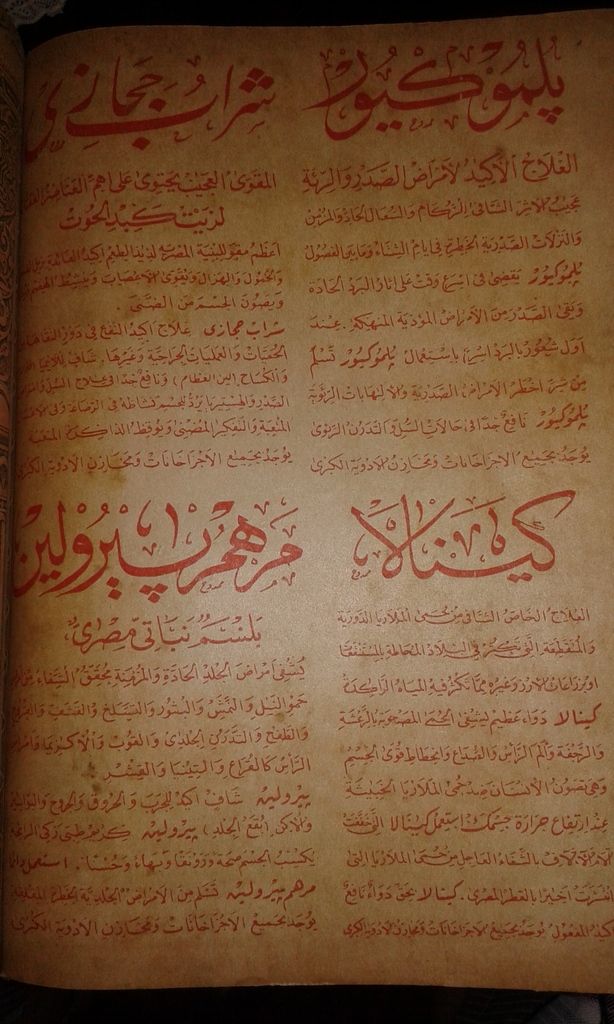 پلموكيور
العلاج الأكيد لأمراض الصدر والرئة
عجيب الاثر الشافى الزكام والسعال الحاد والمزمن
والنزلات الصدرية الخطرة فى ايام الشتاء وما بين الفصول
پلموكيور يقضى فى اسرع وقت على اثار البرد الحادة
ويقى الصدر من الأمراض المؤذية المنهكة. عند
اول شعور بالبرد اسرع باستعمال پلموكيور تسلم
من شر اخطر الأمراض الصدرية والالتهابات الرئوية
پلموكيور نافع جدا فى حالات السل والتدرن الرئوى
يوجد بجميع الاجزاخانات ومخازن الادوية الكبرى
شراب حجازي
المقوى العجيب يحتوى على اهم العناصر
لزيت كبد الحوت
اعظم مقو للبنية المصرية لذيذ الطعم اكيد الفائدة
والخمول والهزال ويقوى الاعصاب وينشط الهضم
ويصون الجسم من الضنى.
شراب حجازى علاج اكيد النفع فى دور النقاهة
الحميات والعمليات الجراحية وغيرها. شاف
والكساح (لين العظام) ونافع جدا فى علاج السل
الصدر والهستيريا يرد للجسم نشاطه فى الرضاعة وفى
المتعبة والتفكير المضنى ويوقظ الذاكرة المتعبة
يوجد بجميع الاجزاخانات ومخازن الادوية الكبرى
كينالا
العلاج الخاص الشافى من حمى الملاريا الدورية
والمتقطعة التى تكثر فى البلاد المحاطة بالمستنقعات
او بزراعات الأرز وغيره مما تكثر فيه المياه الراكدة
كينالا دواء عظيم يشفى الحمى المصحوبة بالرعشة
والرجفة وألم الرأس والصداع وانحطاط قوى الجسم
وهى تصون الانسان من حمى الملاريا الخبيثة
عند ارتفاع حرارة جسمك استعمل كينالا التى حققت
الآلاف بالشفاء العاجل من حمى الملاريا التى
انتشرت اخيرا بالقطر المصرى. كينالا بحق دواء نافع
اكيد المفعول يوجد بجميع الاجزاخانات ومخازن الادوية الكبرى
مرهم پيرولين
بلسم نباتى مصرى
يشفى أمراض الجلد الحادة والمزمنة يحقق الشفاء من
حمو النيل والنمش والبثور والتسلخ والقشب
والطفح والتدرن الجلدى والقوب والأكزيما وأمراض
الرأس كالقراع والتينيا والقشر.
پيرولين شاف اكيد للجرب والحروق والجروح
(بقع الجلد) پيرولين كريم طبى زكى الرائحة
يكسب الجسم صحة ورونقا وبهاء وحسنا. استعمل دائما
مرهم پيرولين تسلم من الأمراض الجلدية الخطرة
يوجد بجميع الاجزاخانات ومخازن الادوية الكبرى